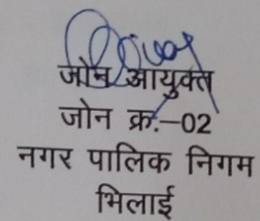 जोन आयुक्त
जोन क्र.–02
नगर पालिक निगम
भिलाई